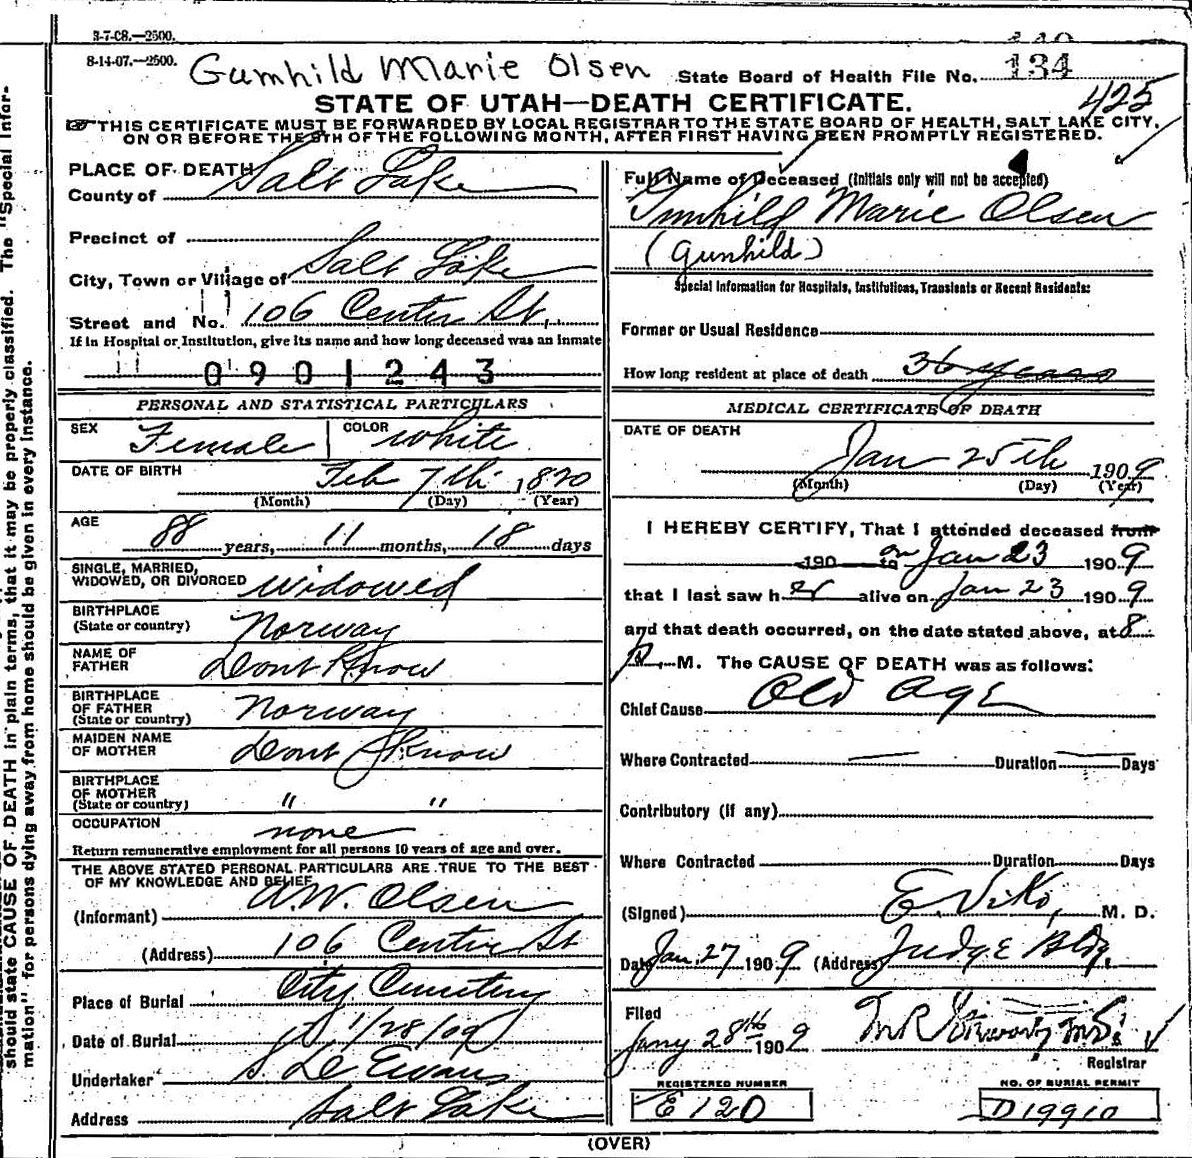 3-7-08.—2500.
8-14-07.—2500. Gunhild Marie Olsen State Board of Health File No. 134
STATE OF UTAH—DEATH CERTIFICATE. 425
THIS CERTIFICATE MUST BE FORWARDED BY LOCAL REGISTRAR TO THE STATE BOARD OF HEALTH, SALT LAKE CITY,
ON OR BEFORE THE 5TH OF THE FOLLOWING MONTH, AFTER FIRST HAVING BEEN PROMPTLY REGISTERED.
PLACE OF DEATH
County of Salt Lake
Precinct of
City, Town or Village of Salt Lake
Street and No. 106 Center St.
If in Hospital or Institution, give its name and how long deceased was an inmate
0901243
PERSONAL AND STATISTICAL PARTICULARS
SEX Female COLOR white
DATE OF BIRTH Feb 7th 1820
(Month) (Day) (Year)
AGE 88 years, 11 months, 18 days
SINGLE, MARRIED,
WIDOWED, OR DIVORCED widowed
BIRTHPLACE
(State or country) Norway
NAME OF
FATHER Dont Know
BIRTHPLACE
OF FATHER
(State or country) Norway
MAIDEN NAME
OF MOTHER Dont Know
BIRTHPLACE
OF MOTHER
(State or country) " "
OCCUPATION none
Return remunerative employment for all persons 10 years of age and over.
THE ABOVE STATED PERSONAL PARTICULARS ARE TRUE TO THE BEST
OF MY KNOWLEDGE AND BELIEF
(Informant) A.W. Olsen
(Address) 106 Center St
Place of Burial City Cemetery
Date of Burial 1/28/09
Undertaker S. De Evans
Address Salt Lake
Full Name of Deceased (Initials only will not be accepted)
Gunhild Marie Olsen
(Gunhild)
Special Information for Hospitals, Institutions, Transients or Recent Residents:
Former or Usual Residence
How long resident at place of death 36 years
MEDICAL CERTIFICATE OF DEATH
DATE OF DEATH
Jan 25th 1909
(Month) (Day) (Year)
I HEREBY CERTIFY, That I attended deceased from
190 to on Jan 23 1909
that I last saw her alive on Jan 23 1909
and that death occurred, on the date stated above, at 8
P. M. The CAUSE OF DEATH was as follows:
Chief Cause Old Age
Where Contracted Duration Days
Contributory (if any)
Where Contracted Duration Days
(Signed) E. Viko, M. D.
Date Jan. 27 1909 (Address) Judge Bldg.
Filed
Jany 28th 1909
Registrar
REGISTERED NUMBER
E 120
NO. OF BURIAL PERMIT
D19910
(OVER)
should state CAUSE OF DEATH in plain terms, that it may be properly classified. The "Special Infor-
mation" for persons dying away from home should be given in every instance.